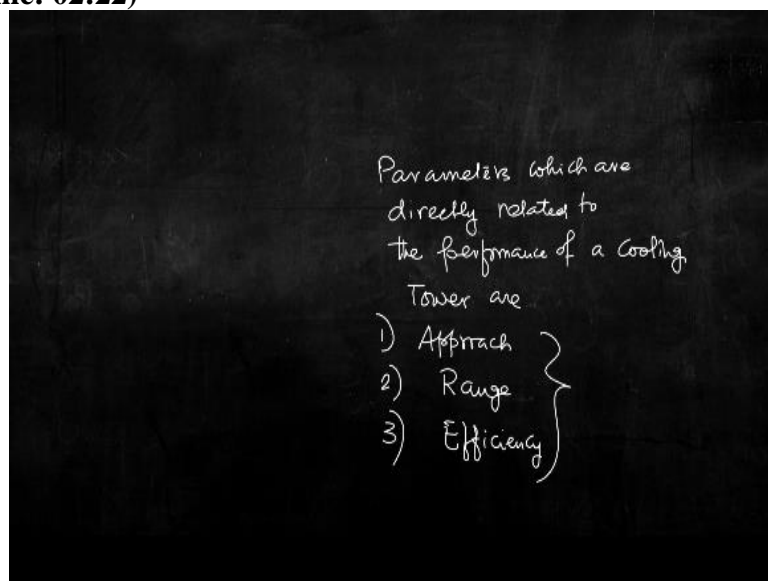 02:22)
Parameters which are
directly related to
the perfomance of a Cooling
Tower are
1) Approach
2) Range
3) Efficiency